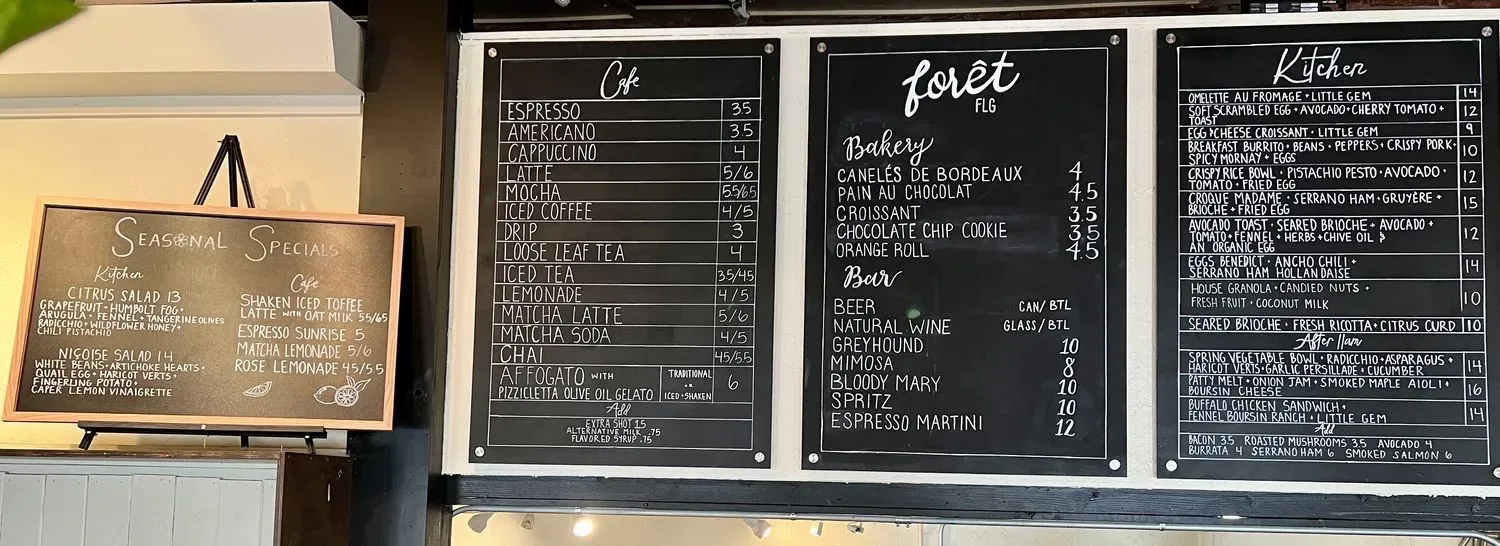 Seasonal Specials
Kitchen
CITRUS SALAD 13
GRAPEFRUIT • HUMBOLT FOG •
ARUGULA • FENNEL • TANGERINE OLIVES
RADICCHIO • WILDFLOWER HONEY •
CHILI PISTACHIO
NIÇOISE SALAD 14
WHITE BEANS • ARTICHOKE HEARTS •
QUAIL EGG • HARICOT VERTS •
FINGERLING POTATO •
CAPER LEMON VINAIGRETTE
Cafe
SHAKEN ICED TOFFEE
LATTE WITH OAT MILK 55/65
ESPRESSO SUNRISE 5
MATCHA LEMONADE 5/6
ROSE LEMONADE 45/55
Cafe
ESPRESSO 3.5
AMERICANO 3.5
CAPPUCCINO 4
LATTE 5/6
MOCHA 55/65
ICED COFFEE 4/5
DRIP 3
LOOSE LEAF TEA 4
ICED TEA 35/45
LEMONADE 4/5
MATCHA LATTE 5/6
MATCHA SODA 4/5
CHAI 45/55
AFFOGATO WITH TRADITIONAL
OR 6
PIZZICLETTA OLIVE OIL GELATO ICED • SHAKEN
Add
EXTRA SHOT 1.5
ALTERNATIVE MILK .75
FLAVORED SYRUP .75
forêt
FLG
Bakery
CANELÉS DE BORDEAUX 4
PAIN AU CHOCOLAT 4.5
CROISSANT 3.5
CHOCOLATE CHIP COOKIE 3.5
ORANGE ROLL 4.5
Bar
BEER CAN/BTL
NATURAL WINE GLASS/BTL
GREYHOUND 10
MIMOSA 8
BLOODY MARY 10
SPRITZ 10
ESPRESSO MARTINI 12
Kitchen
OMELETTE AU FROMAGE • LITTLE GEM 14
SOFT SCRAMBLED EGG • AVOCADO • CHERRY TOMATO • 12
TOAST
EGG & CHEESE CROISSANT • LITTLE GEM 9
BREAKFAST BURRITO • BEANS • PEPPERS • CRISPY PORK • 10
SPICY MORNAY • EGGS
CRISPY RICE BOWL • PISTACHIO PESTO • AVOCADO • 12
TOMATO • FRIED EGG
CROQUE MADAME • SERRANO HAM • GRUYÈRE • 15
BRIOCHE • FRIED EGG
AVOCADO TOAST • SEARED BRIOCHE • AVOCADO •
TOMATO • FENNEL • HERBS • CHIVE OIL & 12
AN ORGANIC EGG
EGGS BENEDICT • ANCHO CHILI • 14
SERRANO HAM HOLLANDAISE
HOUSE GRANOLA • CANDIED NUTS • 10
FRESH FRUIT • COCONUT MILK
SEARED BRIOCHE • FRESH RICOTTA • CITRUS CURD 10
After 11am
SPRING VEGETABLE BOWL • RADICCHIO • ASPARAGUS • 14
HARICOT VERTS • GARLIC PERSILLADE • CUCUMBER
PATTY MELT • ONION JAM • SMOKED MAPLE AIOLI • 16
BOURSIN CHEESE
BUFFALO CHICKEN SANDWICH • 14
FENNEL BOURSIN RANCH • LITTLE GEM
Add
BACON 3.5 ROASTED MUSHROOMS 3.5 AVOCADO 4
BURRATA 4 SERRANO HAM 6 SMOKED SALMON 6